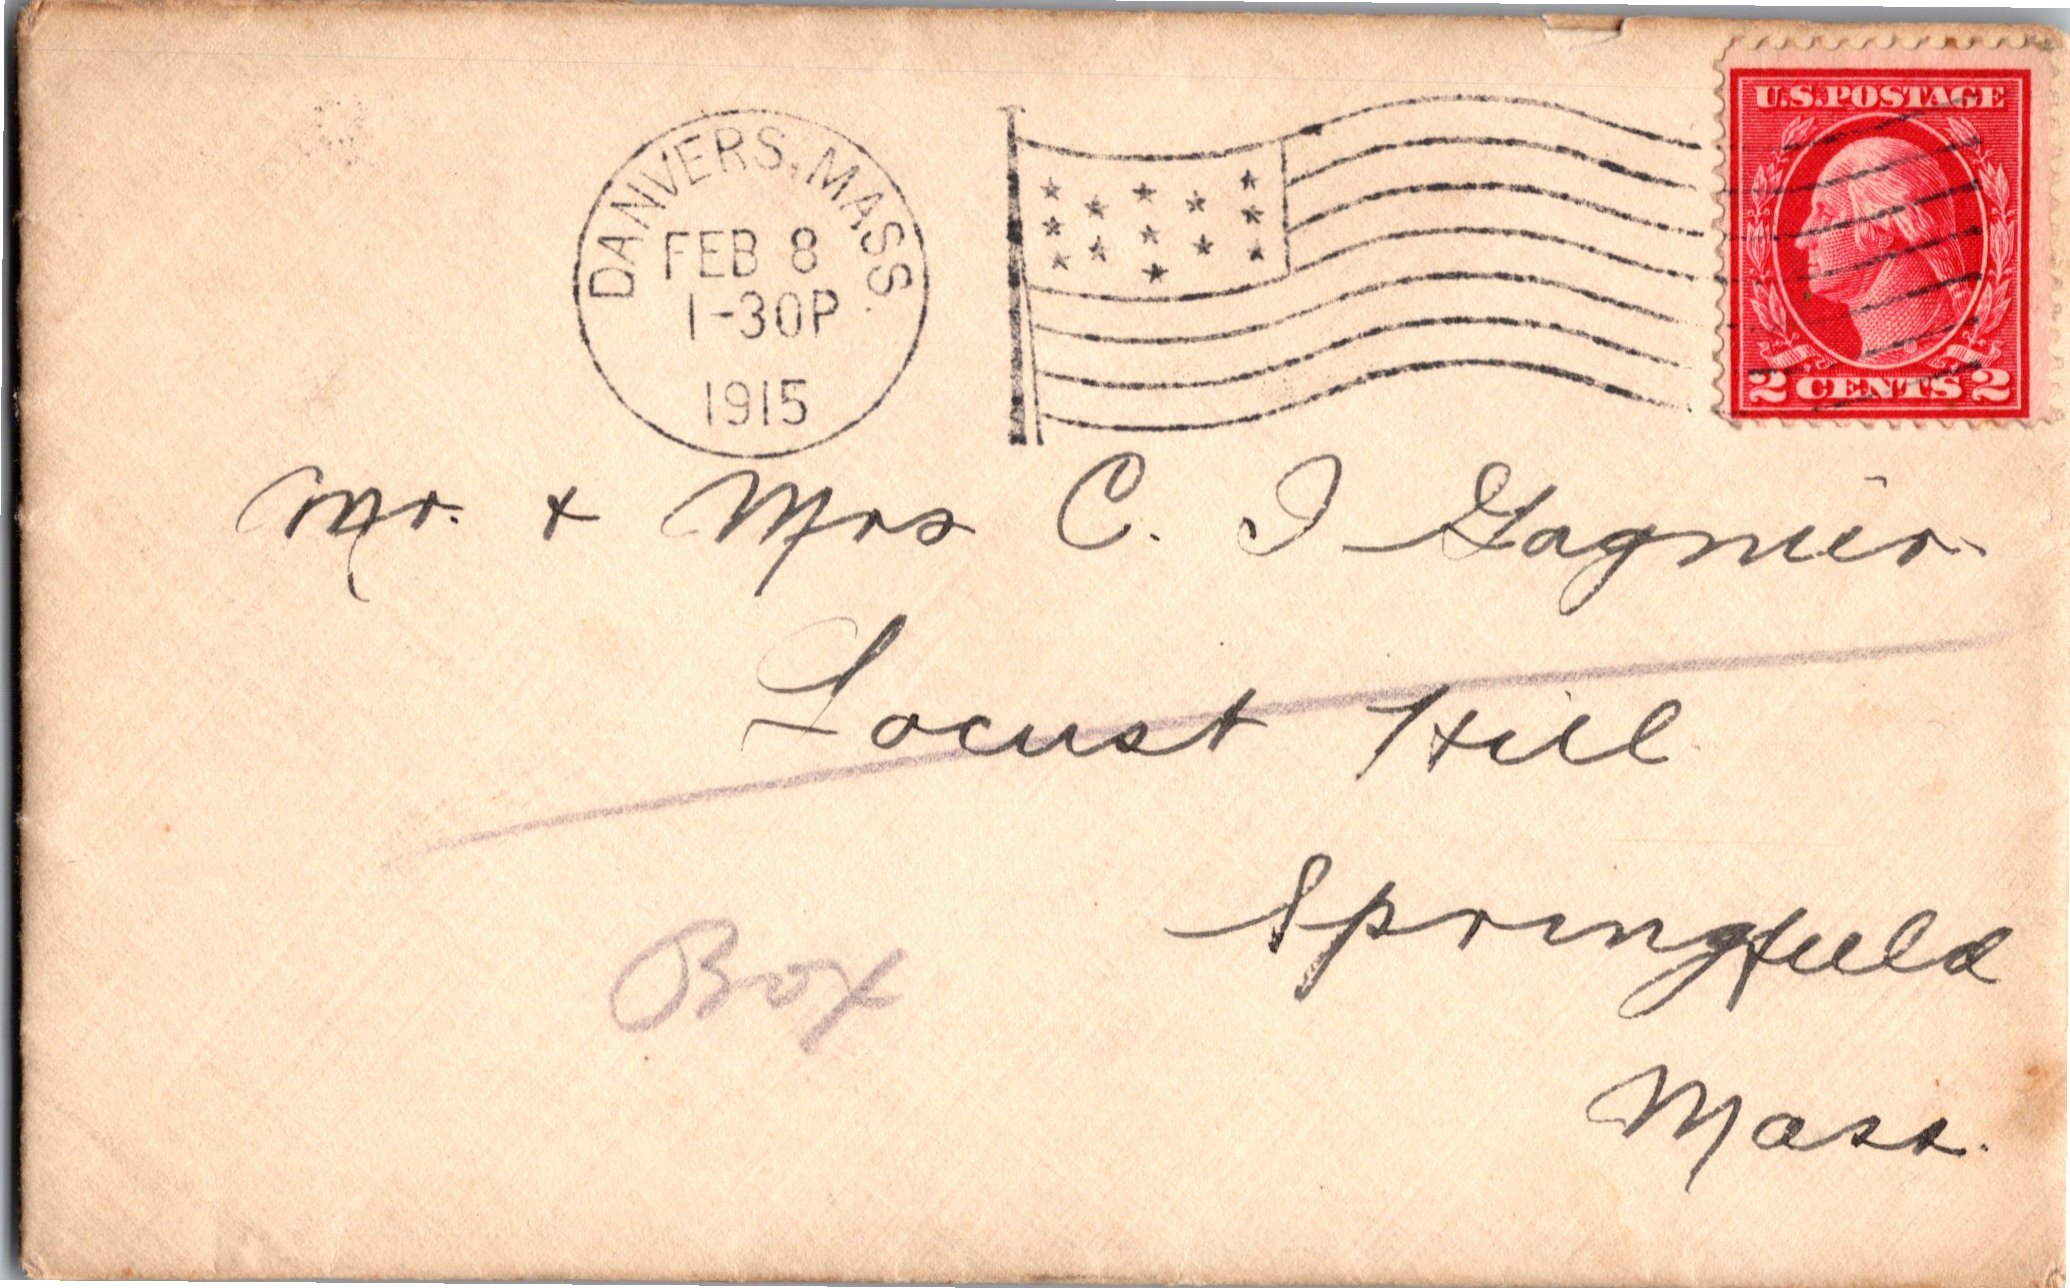 DANVERS, MASS.
FEB 8
1-30P
1915
U.S. POSTAGE
2 CENTS 2
Mr. & Mrs C. I Gagnier
Locust Hill
Springfield
Mass.
Box